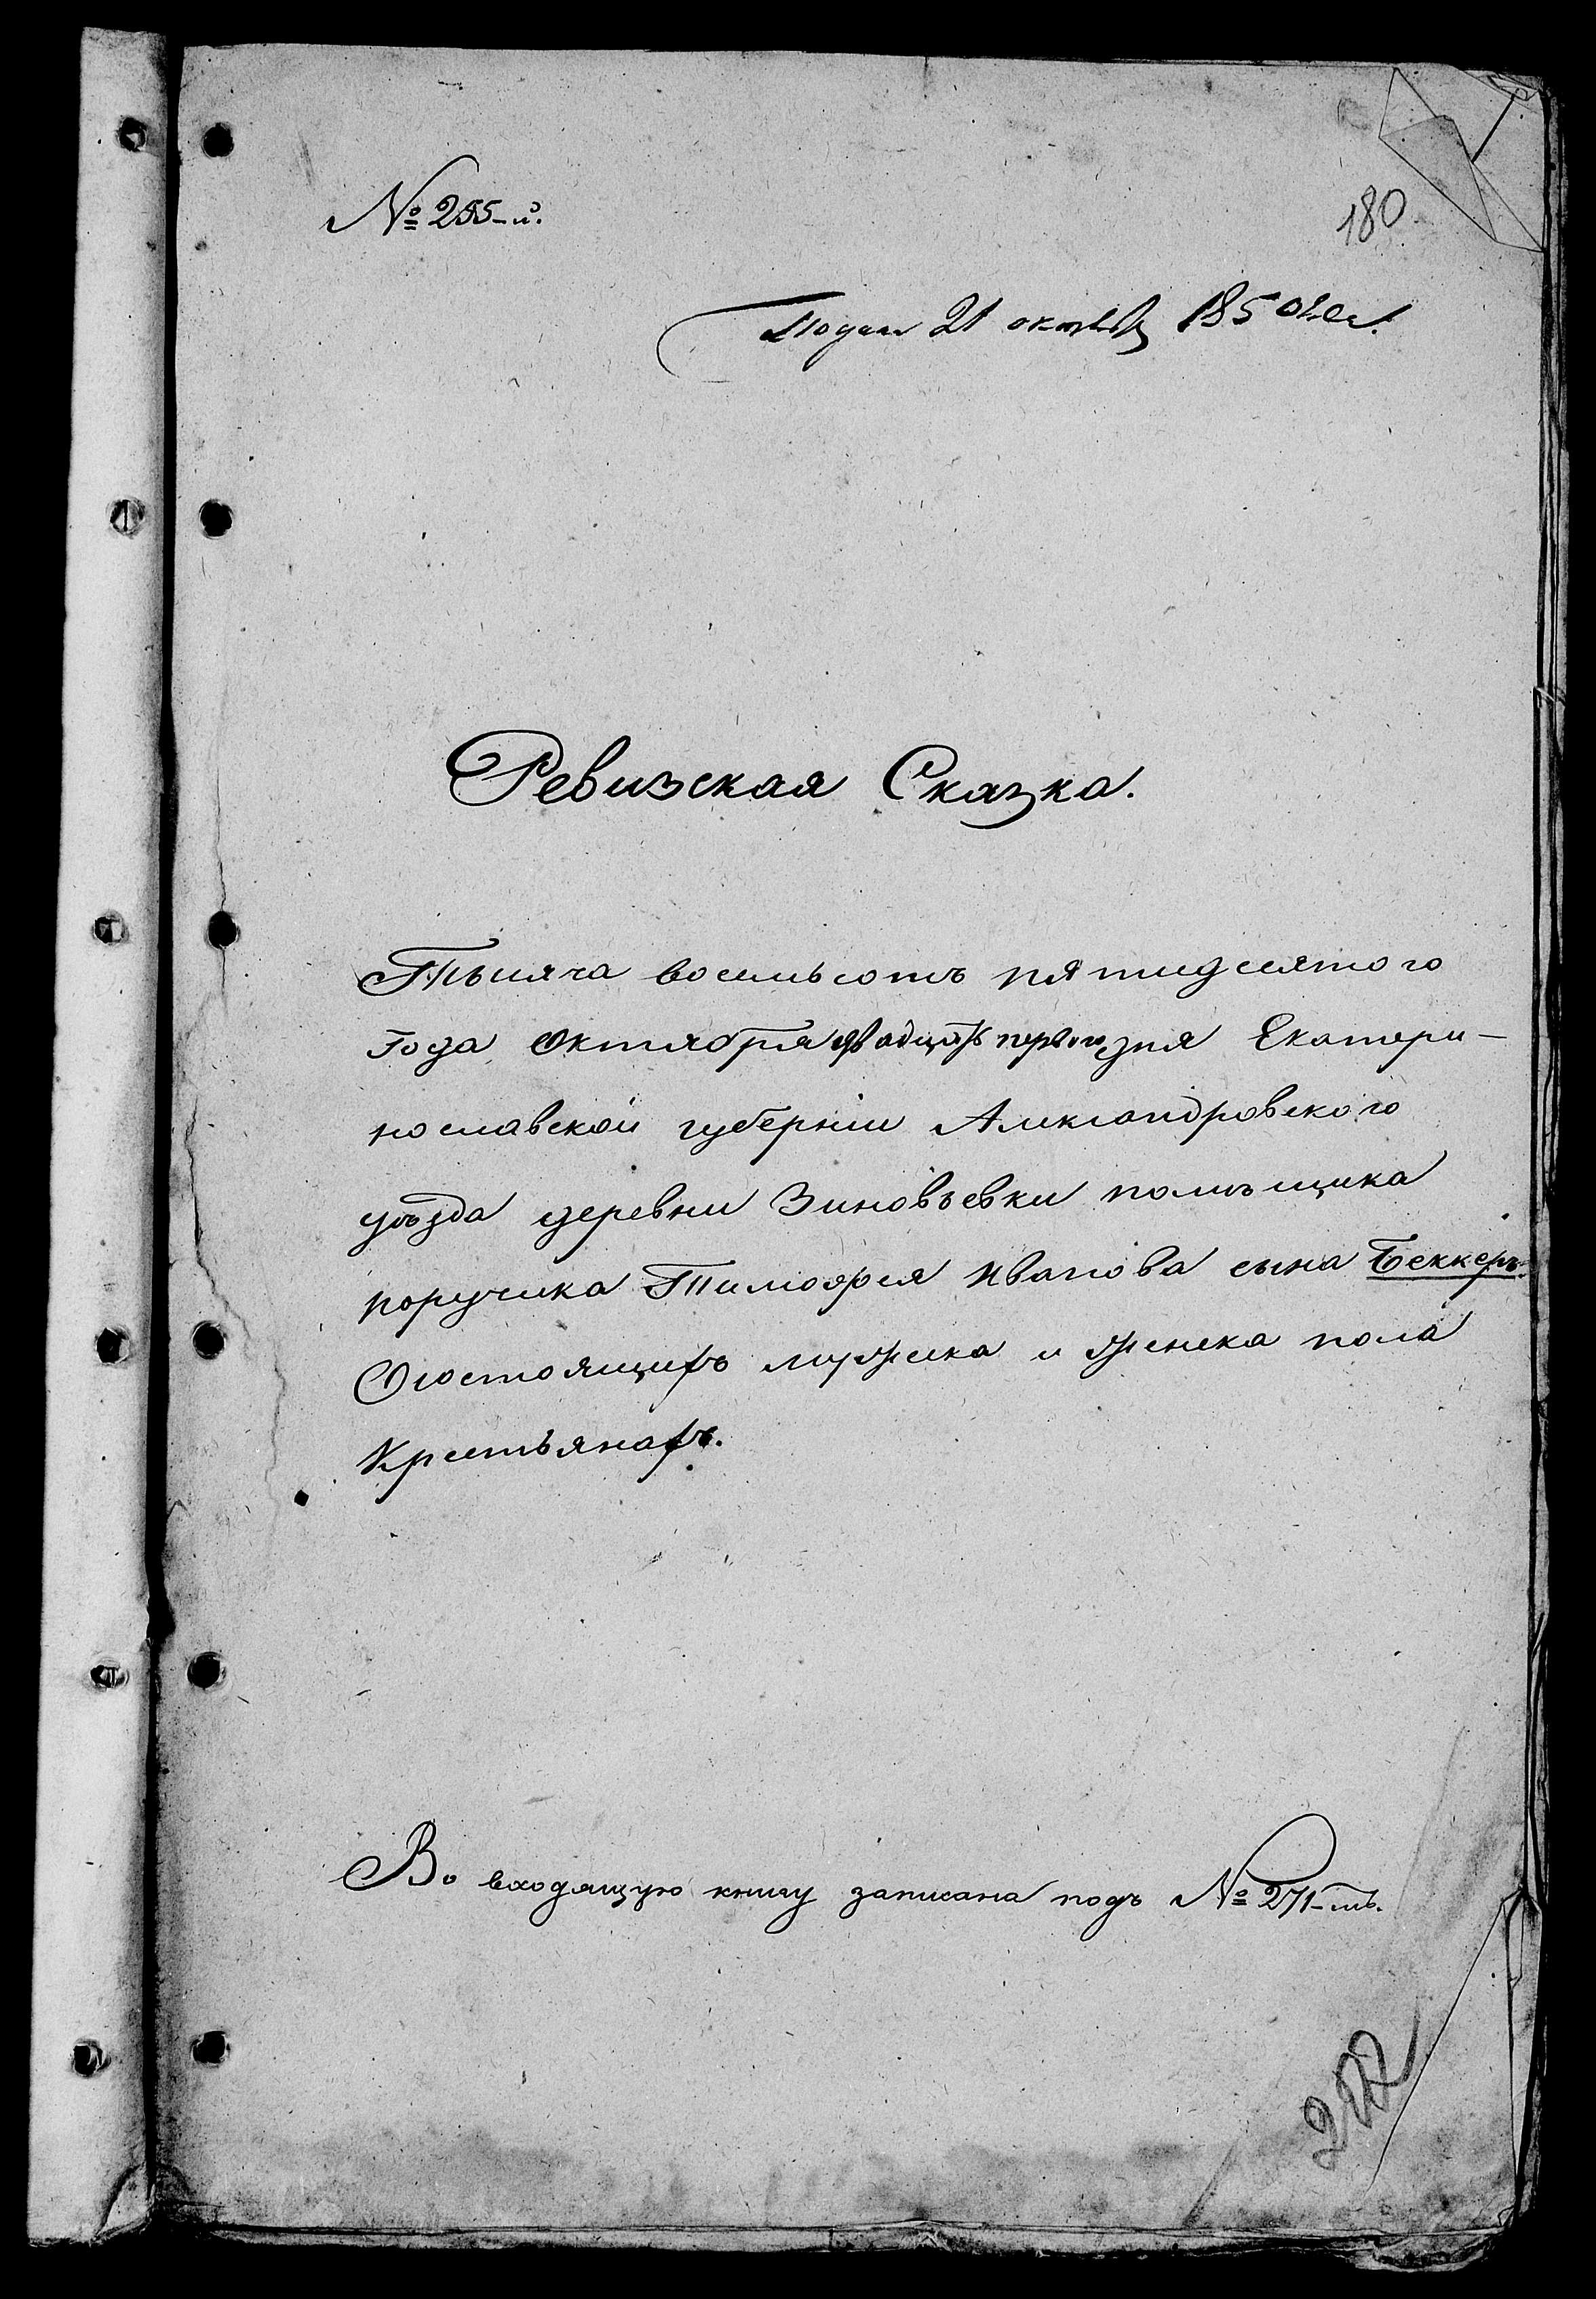 № 255-й.
180
Подан 21 октября 1850 года.
Ревизская Сказка.
Тысяча восемьсотъ пятидесятого
года Октября двадцать первого дня Екатери-
нославской губернiи Александровского
уѣзда деревни Зиновьевки помѣщика
поручика Тимофея Иванова сына Беккеръ.
О состоящихъ мужеска и женска пола
Крестьянахъ.
Во входящую книгу записана подъ № 271-мъ.